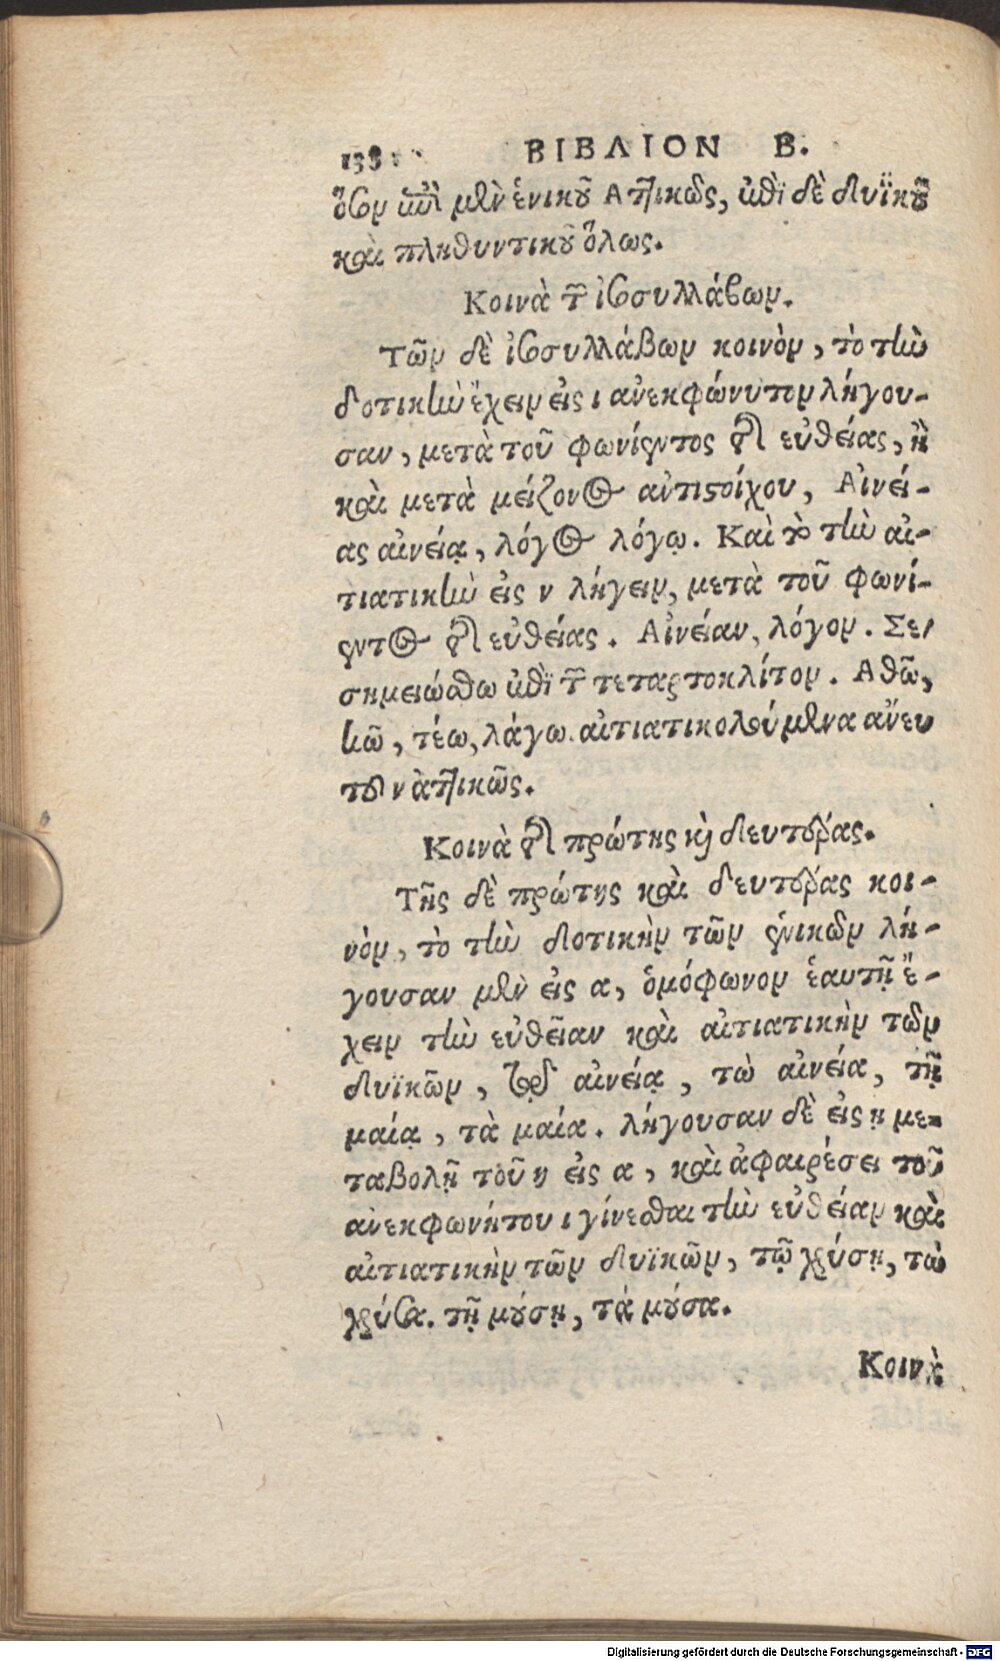 138 ΒΙΒΛΙΟΝ Β.
ὅσον ἐπὶ μὲν ἑνικοῦ Ἀττικῶς, ἐπὶ δὲ δυϊκοῦ
καὶ πληθυντικοῦ ὅλως.
Κοινὰ τῶν ἰσοσυλλάβων.
Τῶν δὲ ἰσοσυλλάβων κοινὸν, τὸ τὴν
δοτικὴν ἔχειν εἰς ι ἀνεκφώνητον λήγου-
σαν, μετὰ τοῦ φωνήεντος τῆς εὐθείας, ἢ
καὶ μετὰ μείζονος ἀντιστοίχου, Αἰνεί-
ας αἰνείᾳ, λόγος λόγῳ. Καὶ τὸ τὴν αἰ-
τιατικὴν εἰς ν λήγειν, μετὰ τοῦ φωνή-
εντος τῆς εὐθείας. Αἰνείαν, λόγον. Σε-
σημειώσθω ἐπὶ τῶν τεταρτοκλίτον. Αθῶ,
κῶ, τέω, λάγω. αἰτιατικολούμενα ἄνευ
τοῦ ν ἀττικῶς.
Κοινὰ τῆς πρώτης καὶ δευτέρας.
Τῆς δὲ πρώτης καὶ δευτέρας κοι-
νὸν, τὸ τὴν δοτικὴν τῶν ἑνικῶν λή-
γουσαν μὲν εἰς α, ὁμόφωνον ἑαυτῇ ἔ-
χειν τὴν εὐθεῖαν καὶ αἰτιατικὴν τῶν
δυϊκῶν, τῷ αἰνείᾳ, τὼ αἰνεία, τῇ
μαίᾳ, τὰ μαία. λήγουσαν δὲ εἰς ῃ με-
ταβολῇ τοῦ η εἰς α, καὶ ἀφαιρέσει τοῦ
ἀνεκφωνήτου ι γίνεσθαι τὴν εὐθείαν καὶ
αἰτιατικὴν τῶν δυϊκῶν, τῷ χρύσῃ, τὼ
χρύσα. τῇ μούσῃ, τὰ μούσα.
Κοινὰ
Digitalisierung gefördert durch die Deutsche Forschungsgemeinschaft - DFG